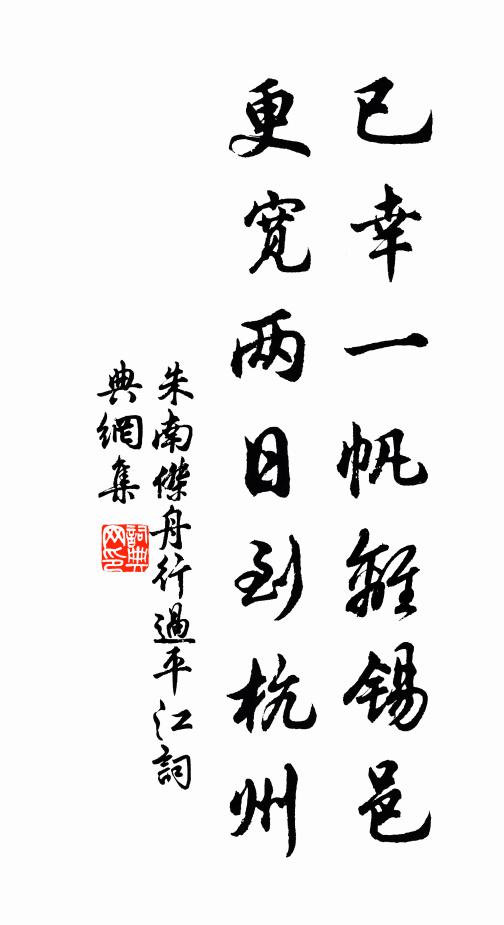 已幸一帆離錫邑
更寬两日到杭州
朱南傑舟行過平江詞
典網集
詞典
网印